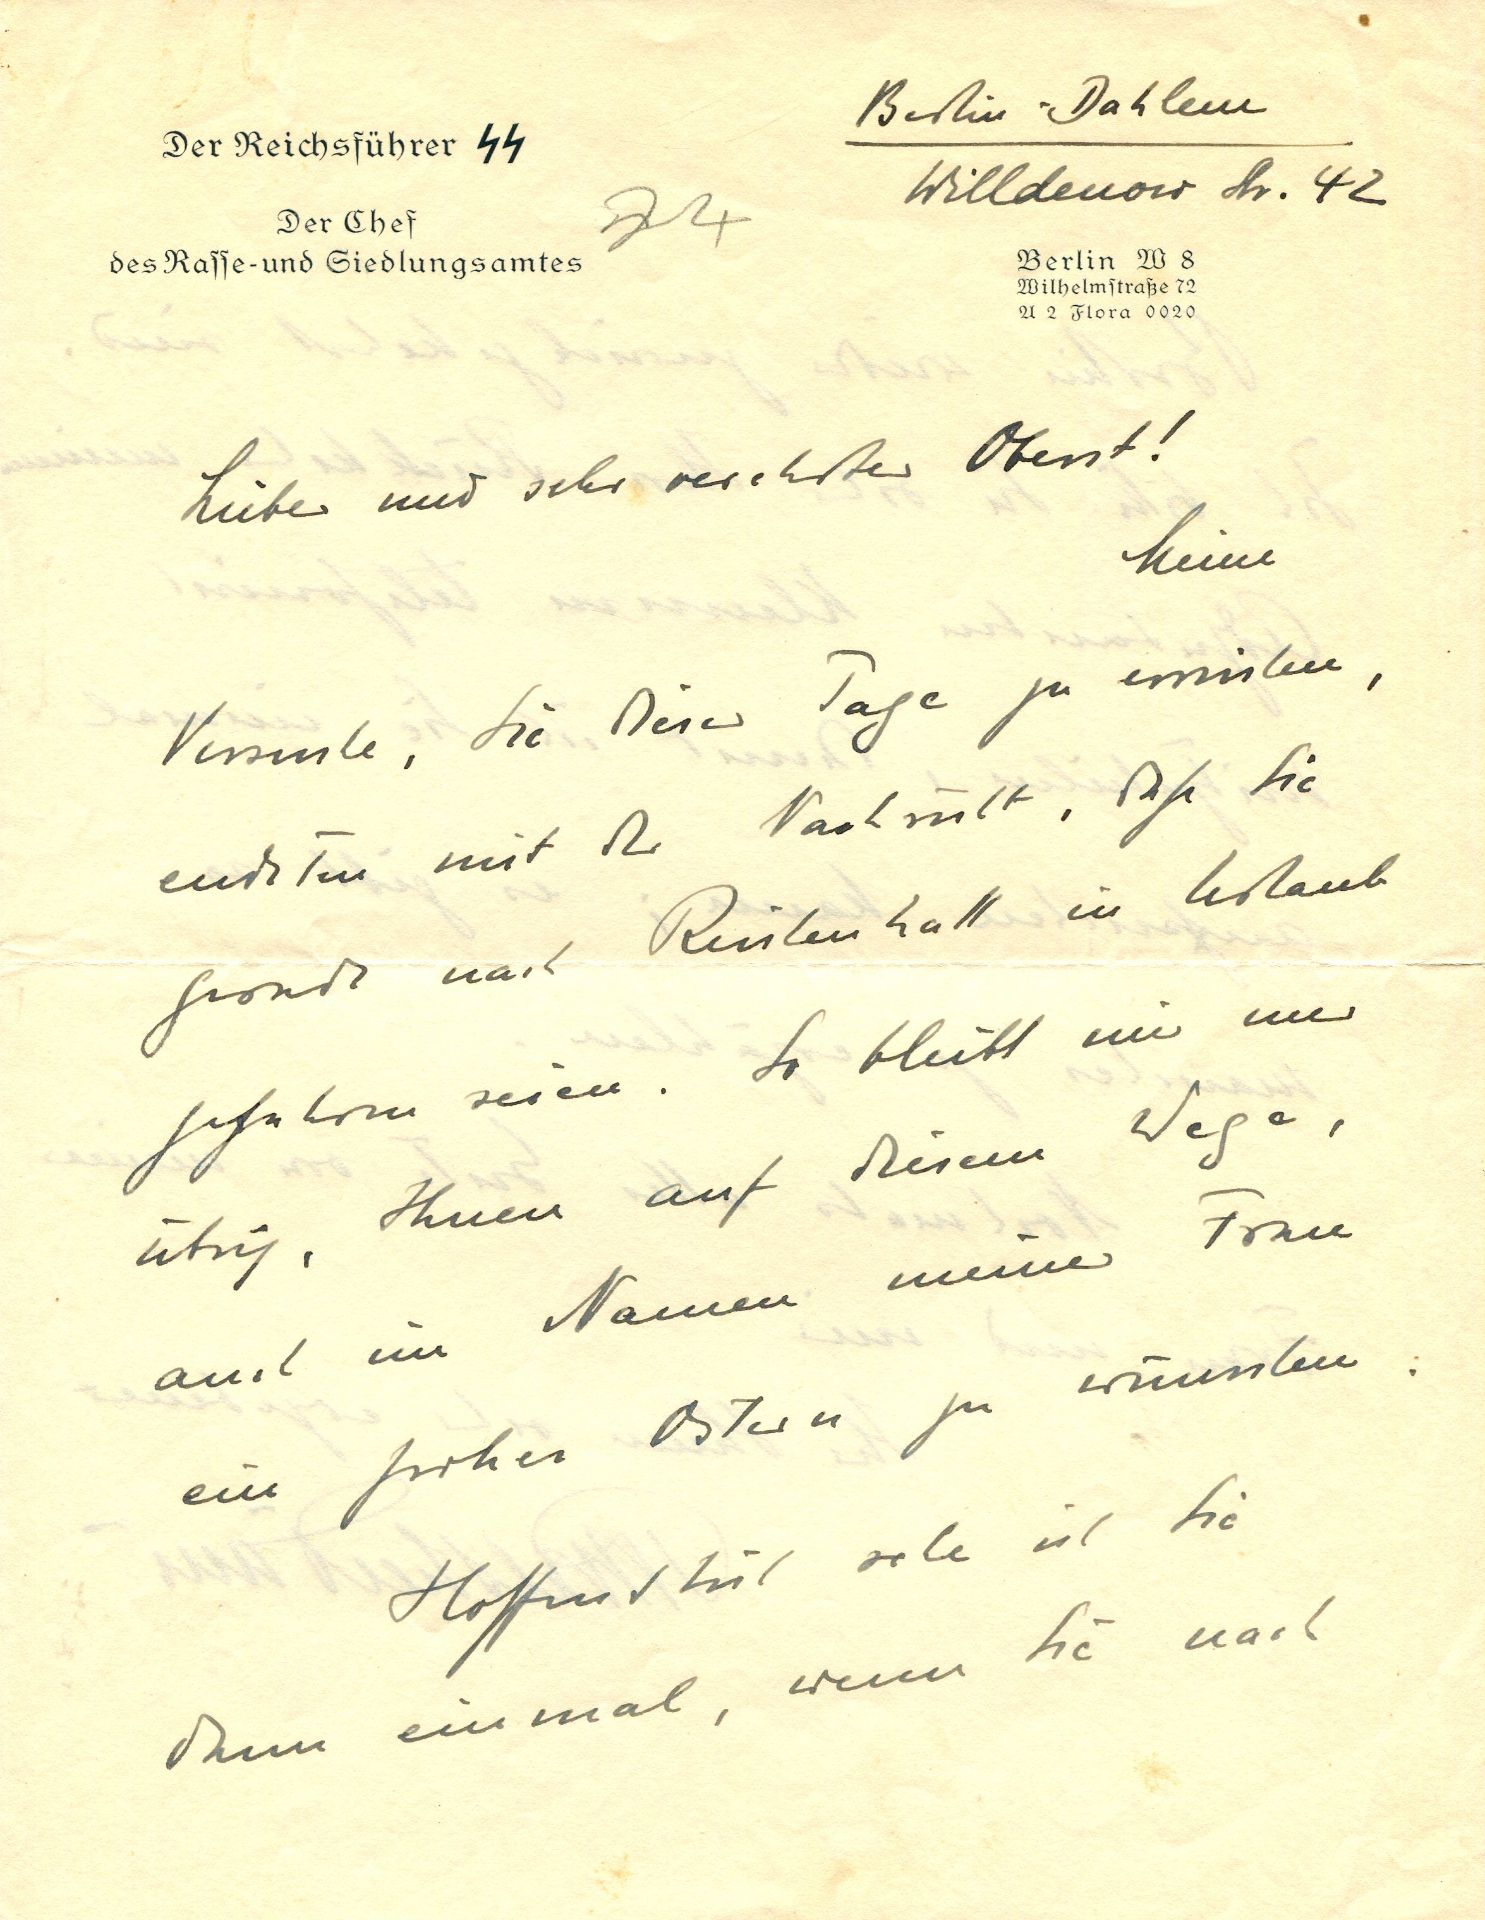 Der Reichsführer SS
Der Chef
des Rasse- und Siedlungsamtes
Berlin-Dahlem
Willdenow Str. 42
Berlin W 8
Wilhelmstraße 72
A 2 Flora 0020
Lieber und sehr verehrter Oberst!
Meine
Versuche, Sie dieser Tage zu erreichen,
endeten mit der Nachricht, daß Sie
gerade nach Reichenhall in Urlaub
gefahren seien. So bleibt mir nur
übrig, Ihnen auf diesem Wege,
auch im Namen meiner Frau
ein frohes Ostern zu wünschen.
Hoffentlich sehe ich Sie
dann einmal, wenn Sie nach